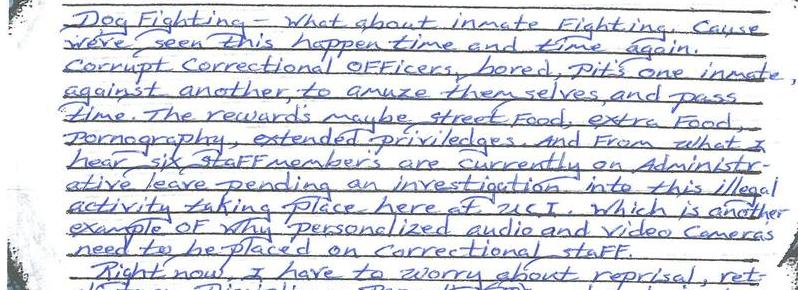 Dog Fighting - What about inmate Fighting. Cause
we've seen this happen time and time again.
Corrupt Correctional OFFicers, bored, Pit's one inmate,
against another, to amuze them selves, and pass
time. The reward's maybe, street Food, extra Food,
Pornography, extended priviledges. And From what I
hear six staFF member's are currently on Administr-
ative leave pending an investigation into this illegal
activity taking place here at UCI. Which is another
example OF why personalized audio and video cameras
need to be placed on correctional staFF.
Right now, I have to worry about reprisal, ret-